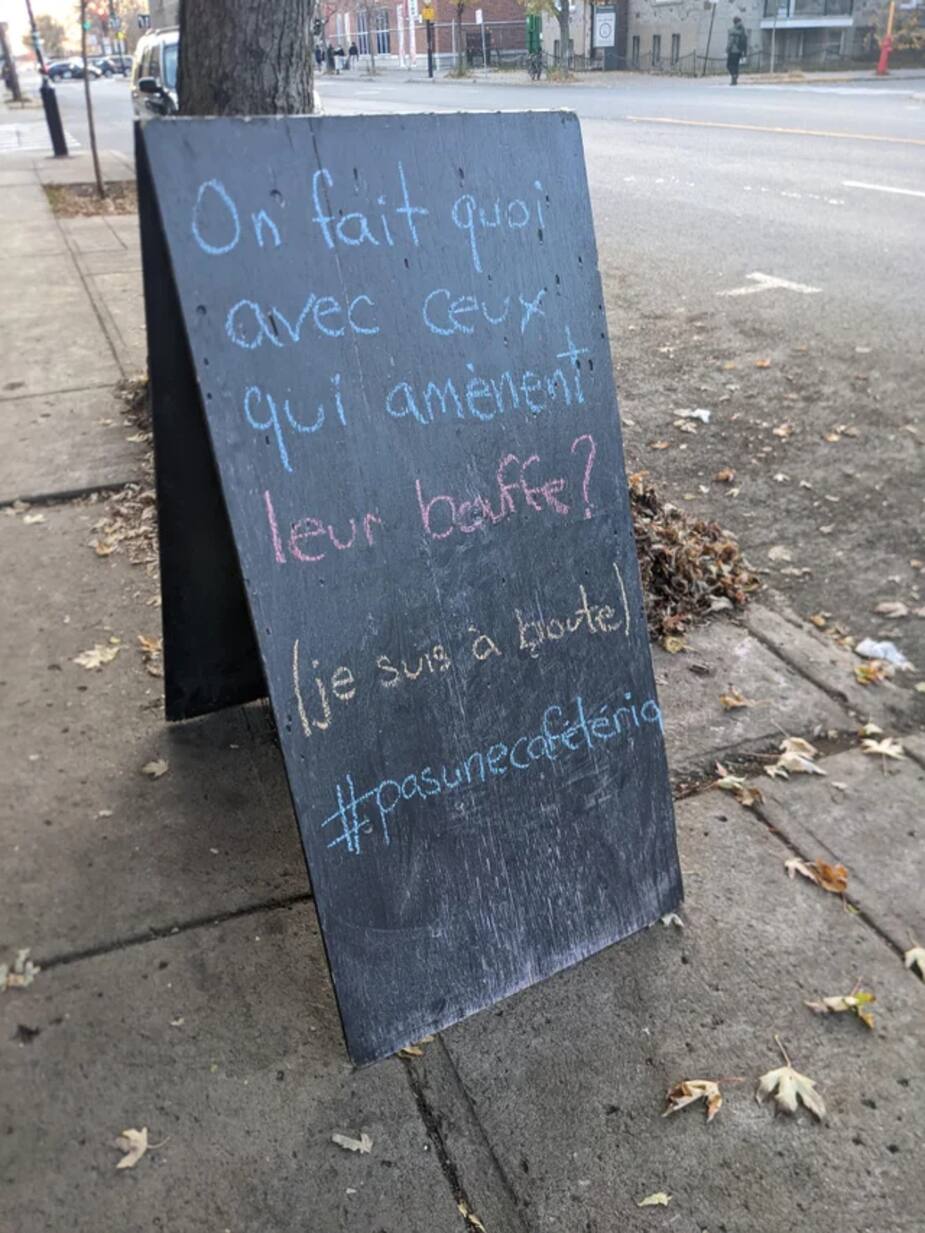 On fait quoi
avec ceux
qui amènent
leur bouffe?
(je suis à boute)
#pasunecafétéria